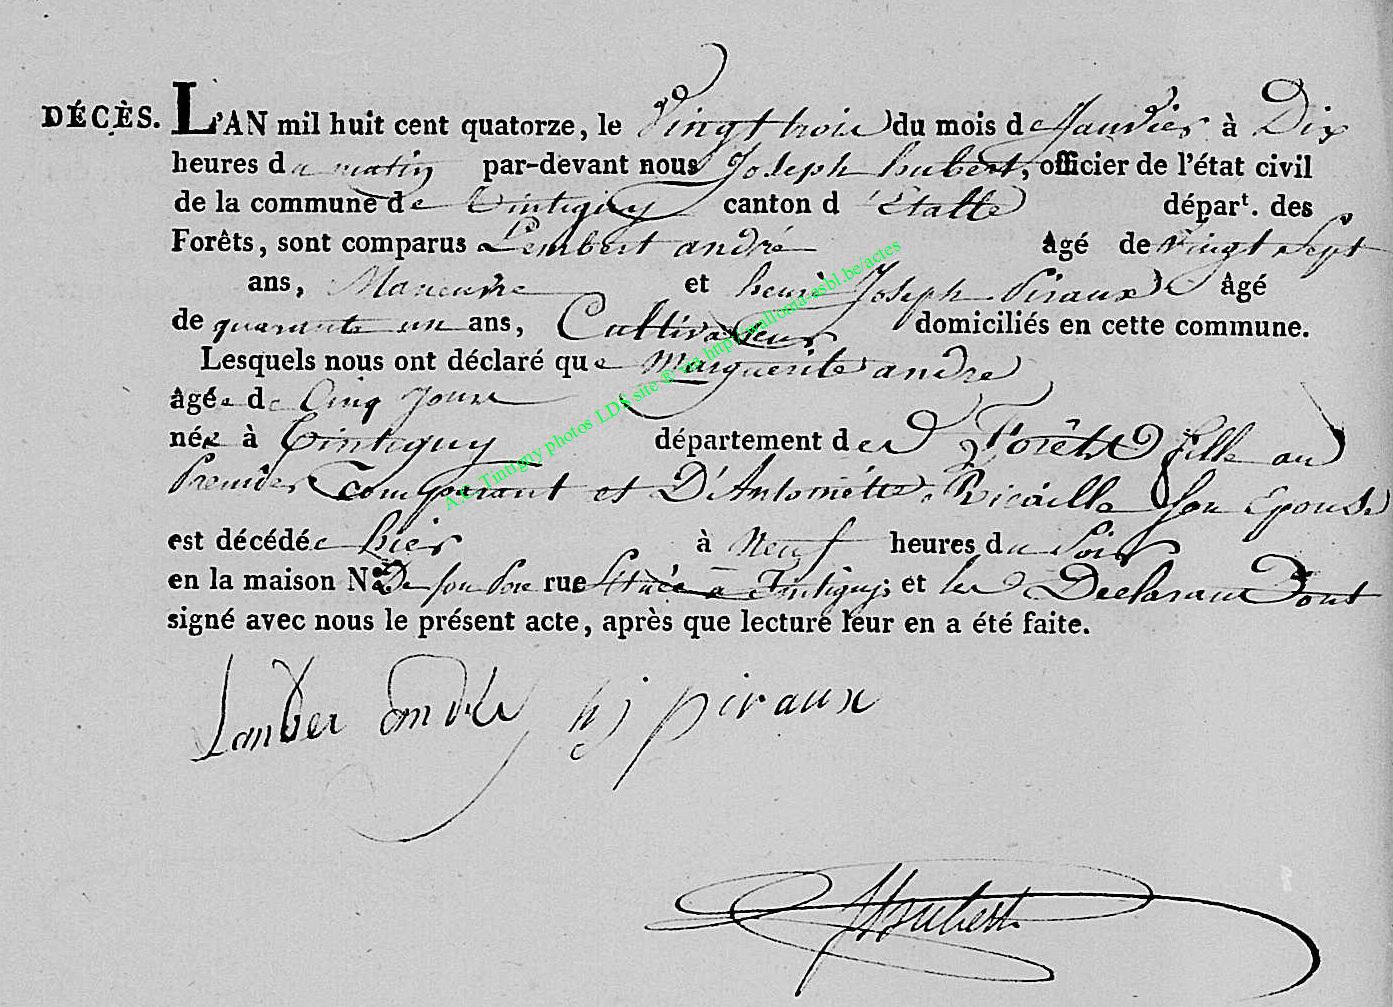 DÉCÈS. L'AN mil huit cent quatorze, le Vingt trois du mois de Janvier à Dix
heures du matin par-devant nous Joseph hubert, officier de l'état civil
de la commune de Tintigny canton d'Etalle départ. des
Forêts, sont comparus Lembert andré âgé de vingt Sept
ans, Maneuvre et henri Joseph Piraux âgé
de quarante un ans, Cultivateur domiciliés en cette commune.
Lesquels nous ont déclaré que Marguerite andré
âgée de Cinq Jours
née à Tintigny département des Forêts fille au
Premier Comparant et D'Antoinette Ricaille Son Epouse
est décédée hier à Neuf heures du Soir
en la maison No De son Pere rue Située a Tintigny; et les Declarans Ont
signé avec nous le présent acte, après que lecture leur en a été faite.
Lanber andre hj piraux
JHubert
A.C. Tintigny photos LDS site © sur http://wallonia-asbl.be/actes